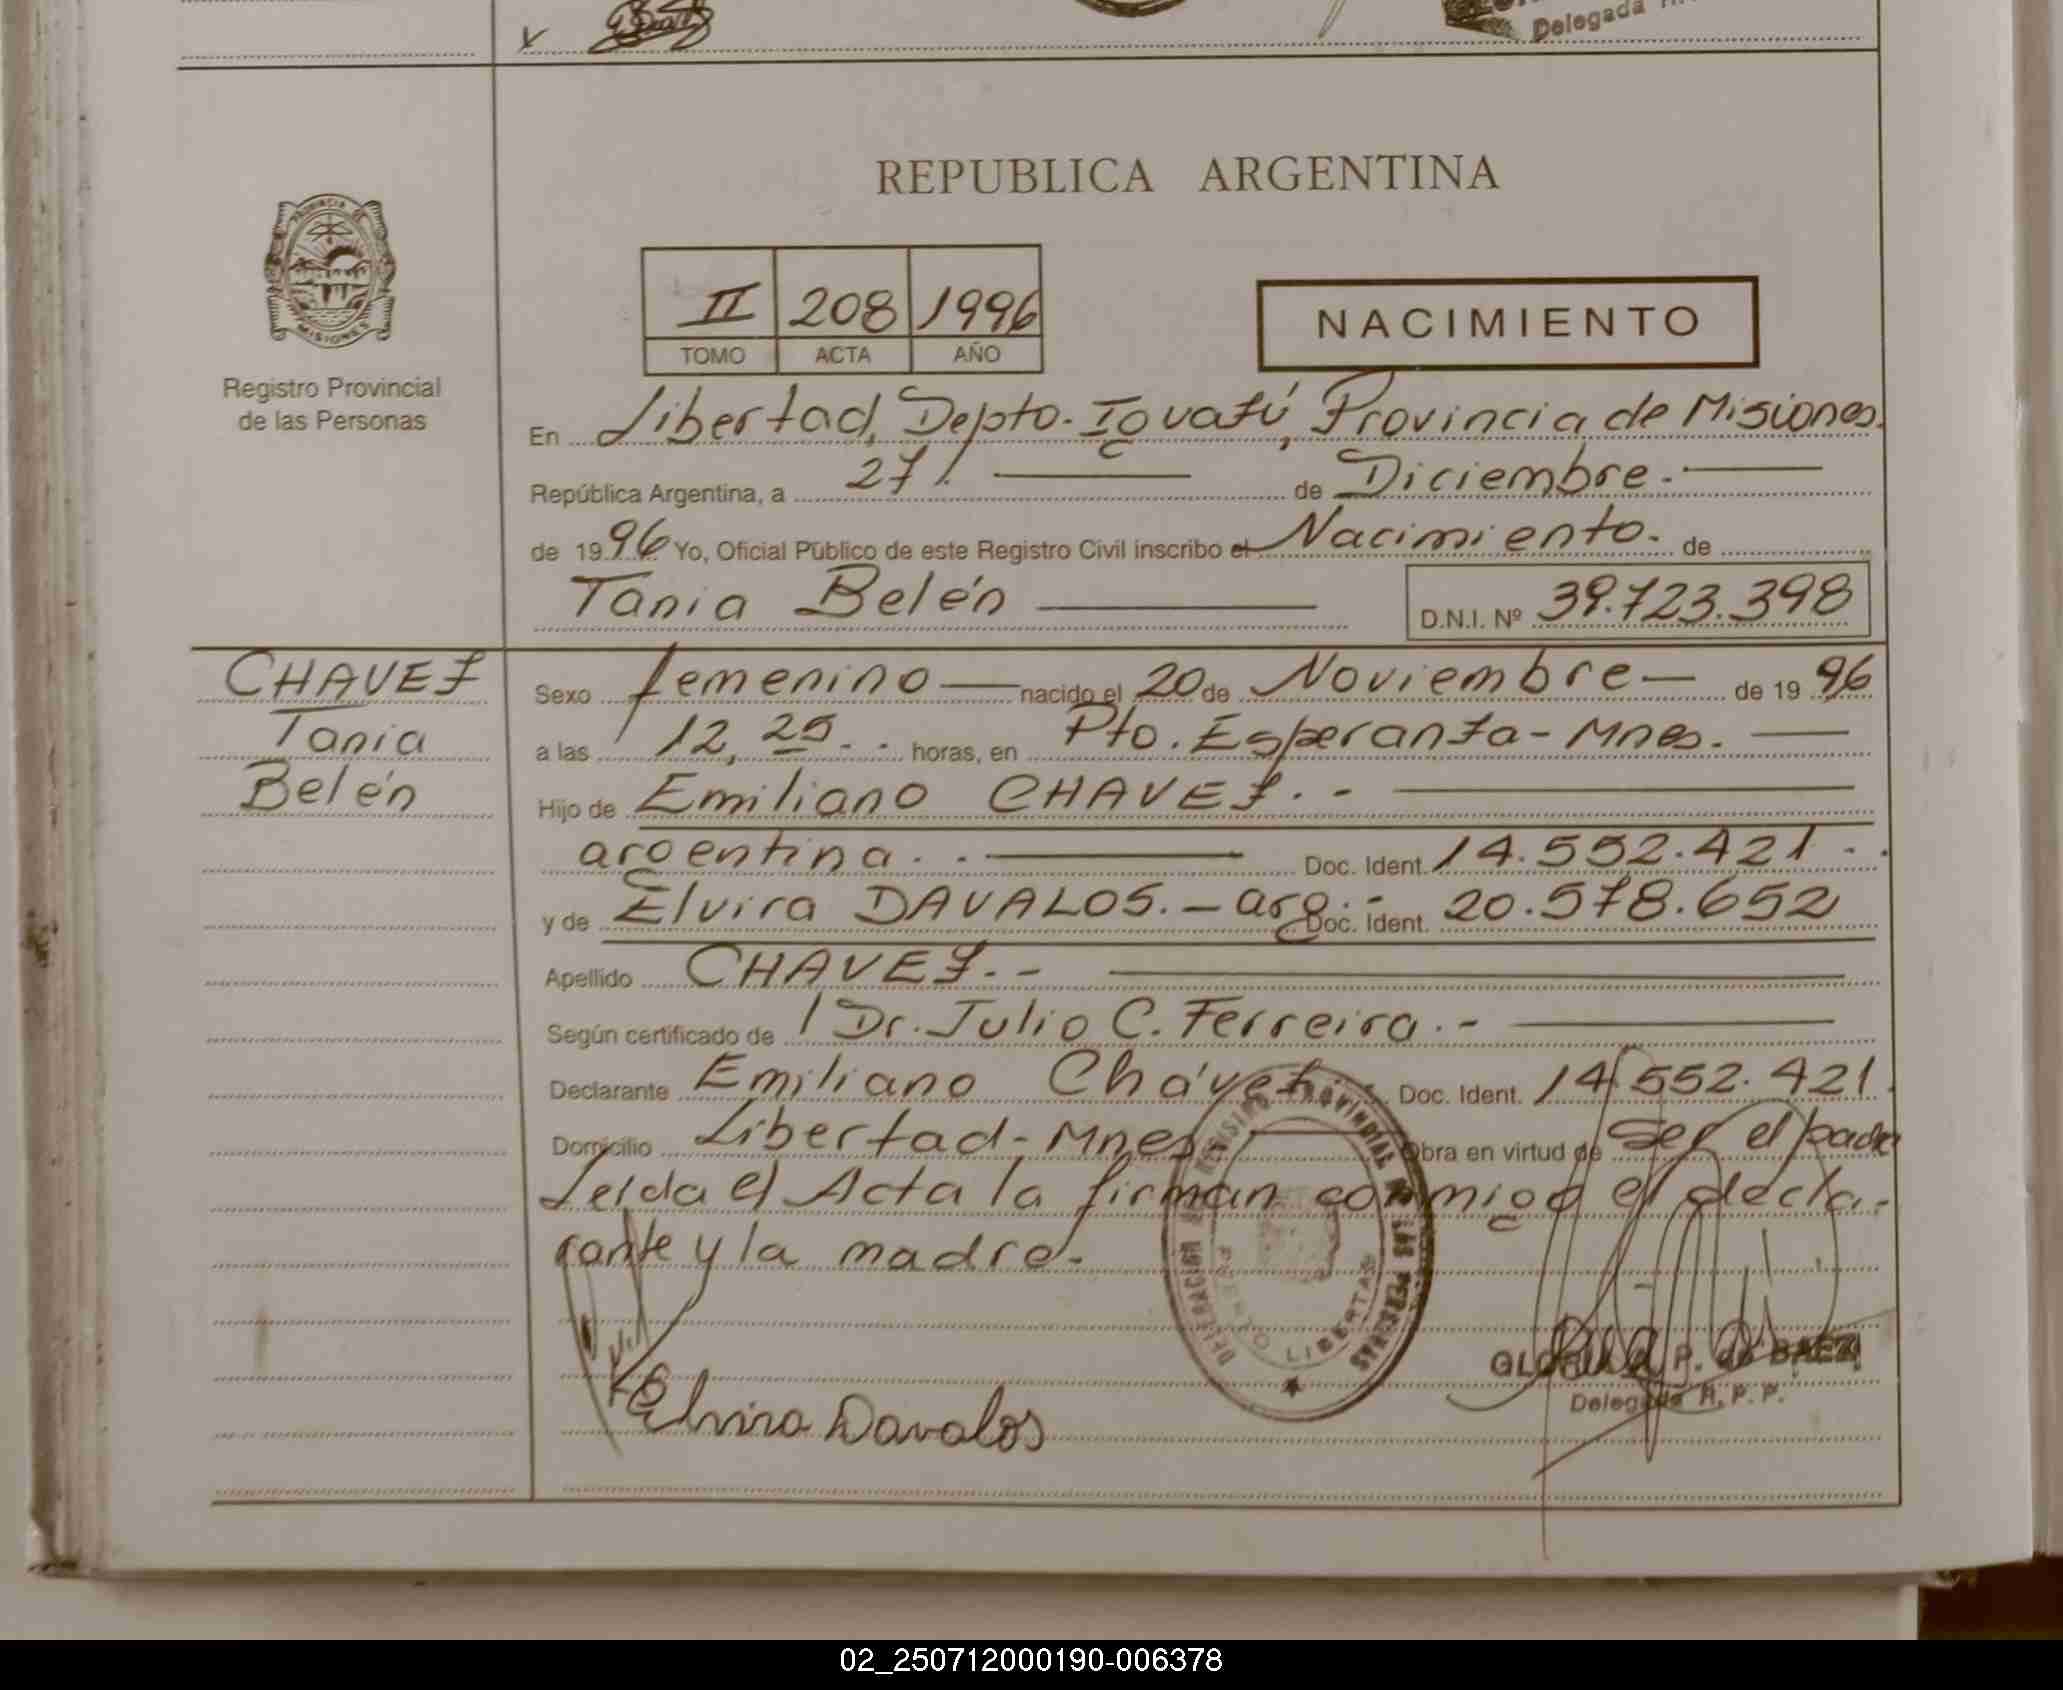 Delegada
REPUBLICA ARGENTINA
PROVINCIA DE
MISIONES
Registro Provincial
de las Personas
II 208 1996
TOMO ACTA AÑO
NACIMIENTO
En Libertad, Depto. Iguazú, Provincia de Misiones.
República Argentina, a 27 de Diciembre.
de 1996 Yo, Oficial Público de este Registro Civil inscribo el Nacimiento. de
Tania Belén D.N.I. Nº 39.723.398
CHAVEZ
Tania
Belén
Sexo femenino nacido el 20 de Noviembre de 1996
a las 12,25.. horas, en Pto. Esperanza - Mnes.
Hijo de Emiliano CHAVEZ.-
argentina.. Doc. Ident. 14.552.421..
y de Elvira DAVALOS.- arg.- Doc. Ident. 20.578.652
Apellido CHAVEZ.-
Según certificado de Dr. Julio C. Ferreira.-
Declarante Emiliano Chávez Doc. Ident. 14.552.421.
Domicilio Libertad - Mnes Obra en virtud de Ser el padre
Leida el Acta la firman conmigo el decla-
rante y la madre.
DELEGACION REGISTRO PROVINCIAL DE LAS PERSONAS
LIBERTAD
Elvira Davalos
GLORIA P. de BAEZ
Delegada R.P.P.
02_250712000190-006378